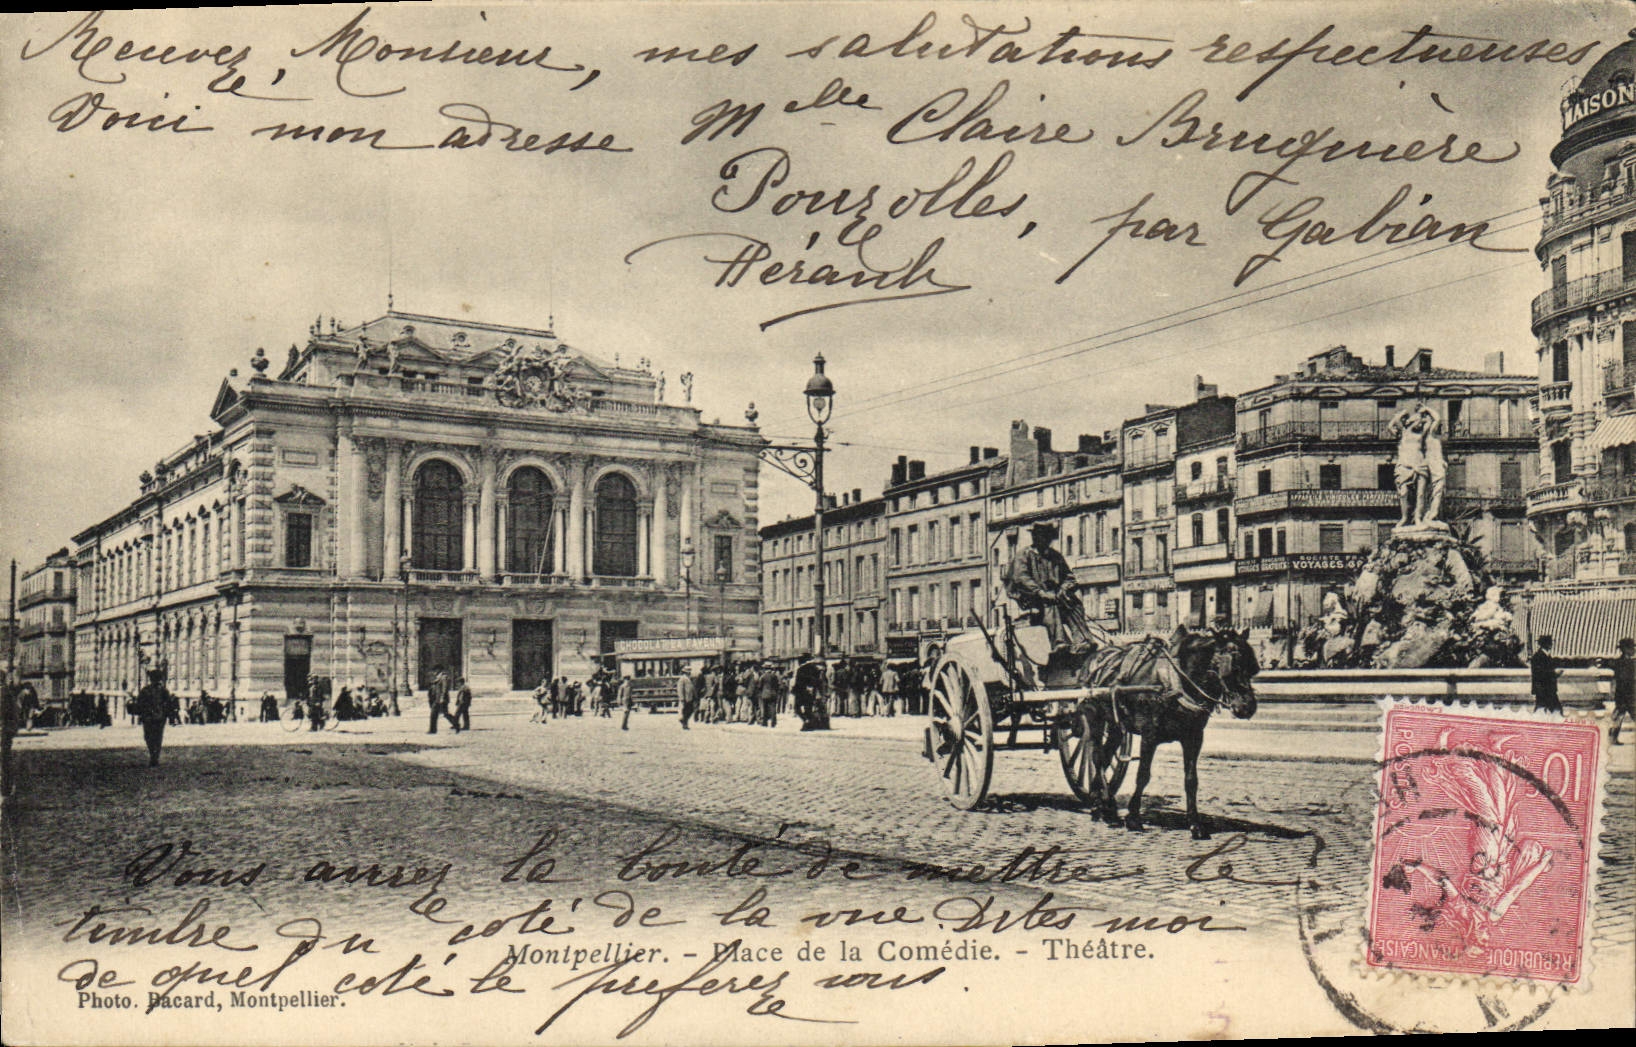 Recevez, Monsieur, mes salutations respectueuses
Voici mon adresse Mlle Claire Bruguière
Pouzolles, par Gabian
Hérault
MAISON
CHOCOLAT LA FAVOR
SOCIETE
VOYAGES
10
POSTES
REPUBLIQUE FRANÇAISE
Vous aurrez la bonté de mettre le
timbre du coté de la vue. Dites moi
de quel coté le preferez vous.
Montpellier. - Place de la Comédie. - Théâtre.
Photo. Bacard, Montpellier.